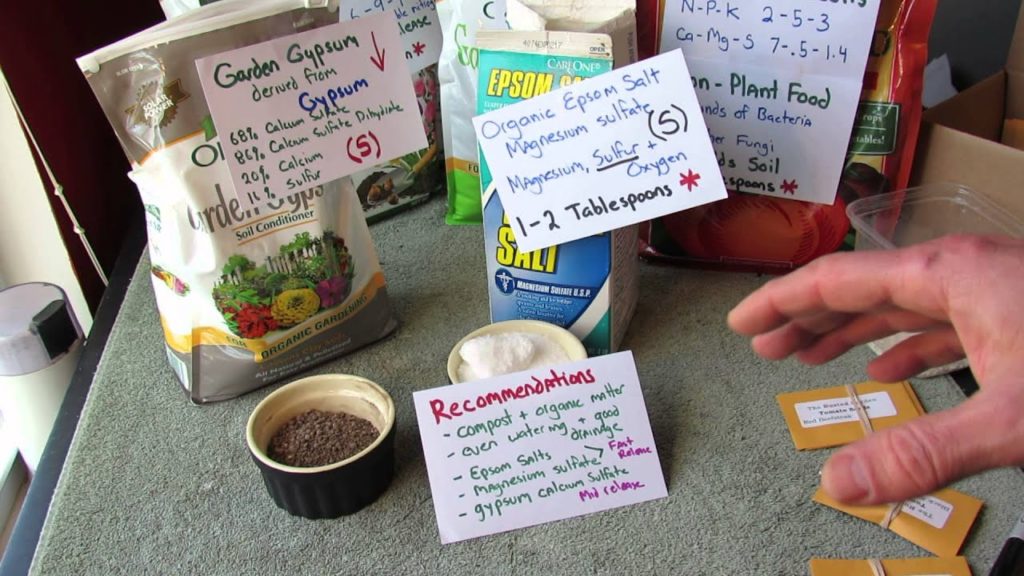 Garden Gypsum
derived from
Gypsum
68% Calcium Sulfate
86% Calcium Sulfate Dihydrate
20% Calcium
16% Sulfur
(S)
Soil Conditioner
ORGANIC GARDENING
6-9-1
release
*
4074080217
OPEN
CAREONE
EPSOM
Organic Epsom Salt
Magnesium sulfate
(S)
Magnesium, Sulfur +
Oxygen
1-2 Tablespoons *
SALT
MAGNESIUM SULFATE U.S.P.
N-P-K 2-5-3
Ca-Mg-S 7-.5-1.4
- Plant Food
of Bacteria
Fungi
Soil
*
Recommendations
- compost + organic matter
- even watering + good
drainage
- Epsom Salts
- magnesium sulfate > Fast
Release
- gypsum calcium sulfate
Mid release
The Rusted Garden
Tomato Seeds